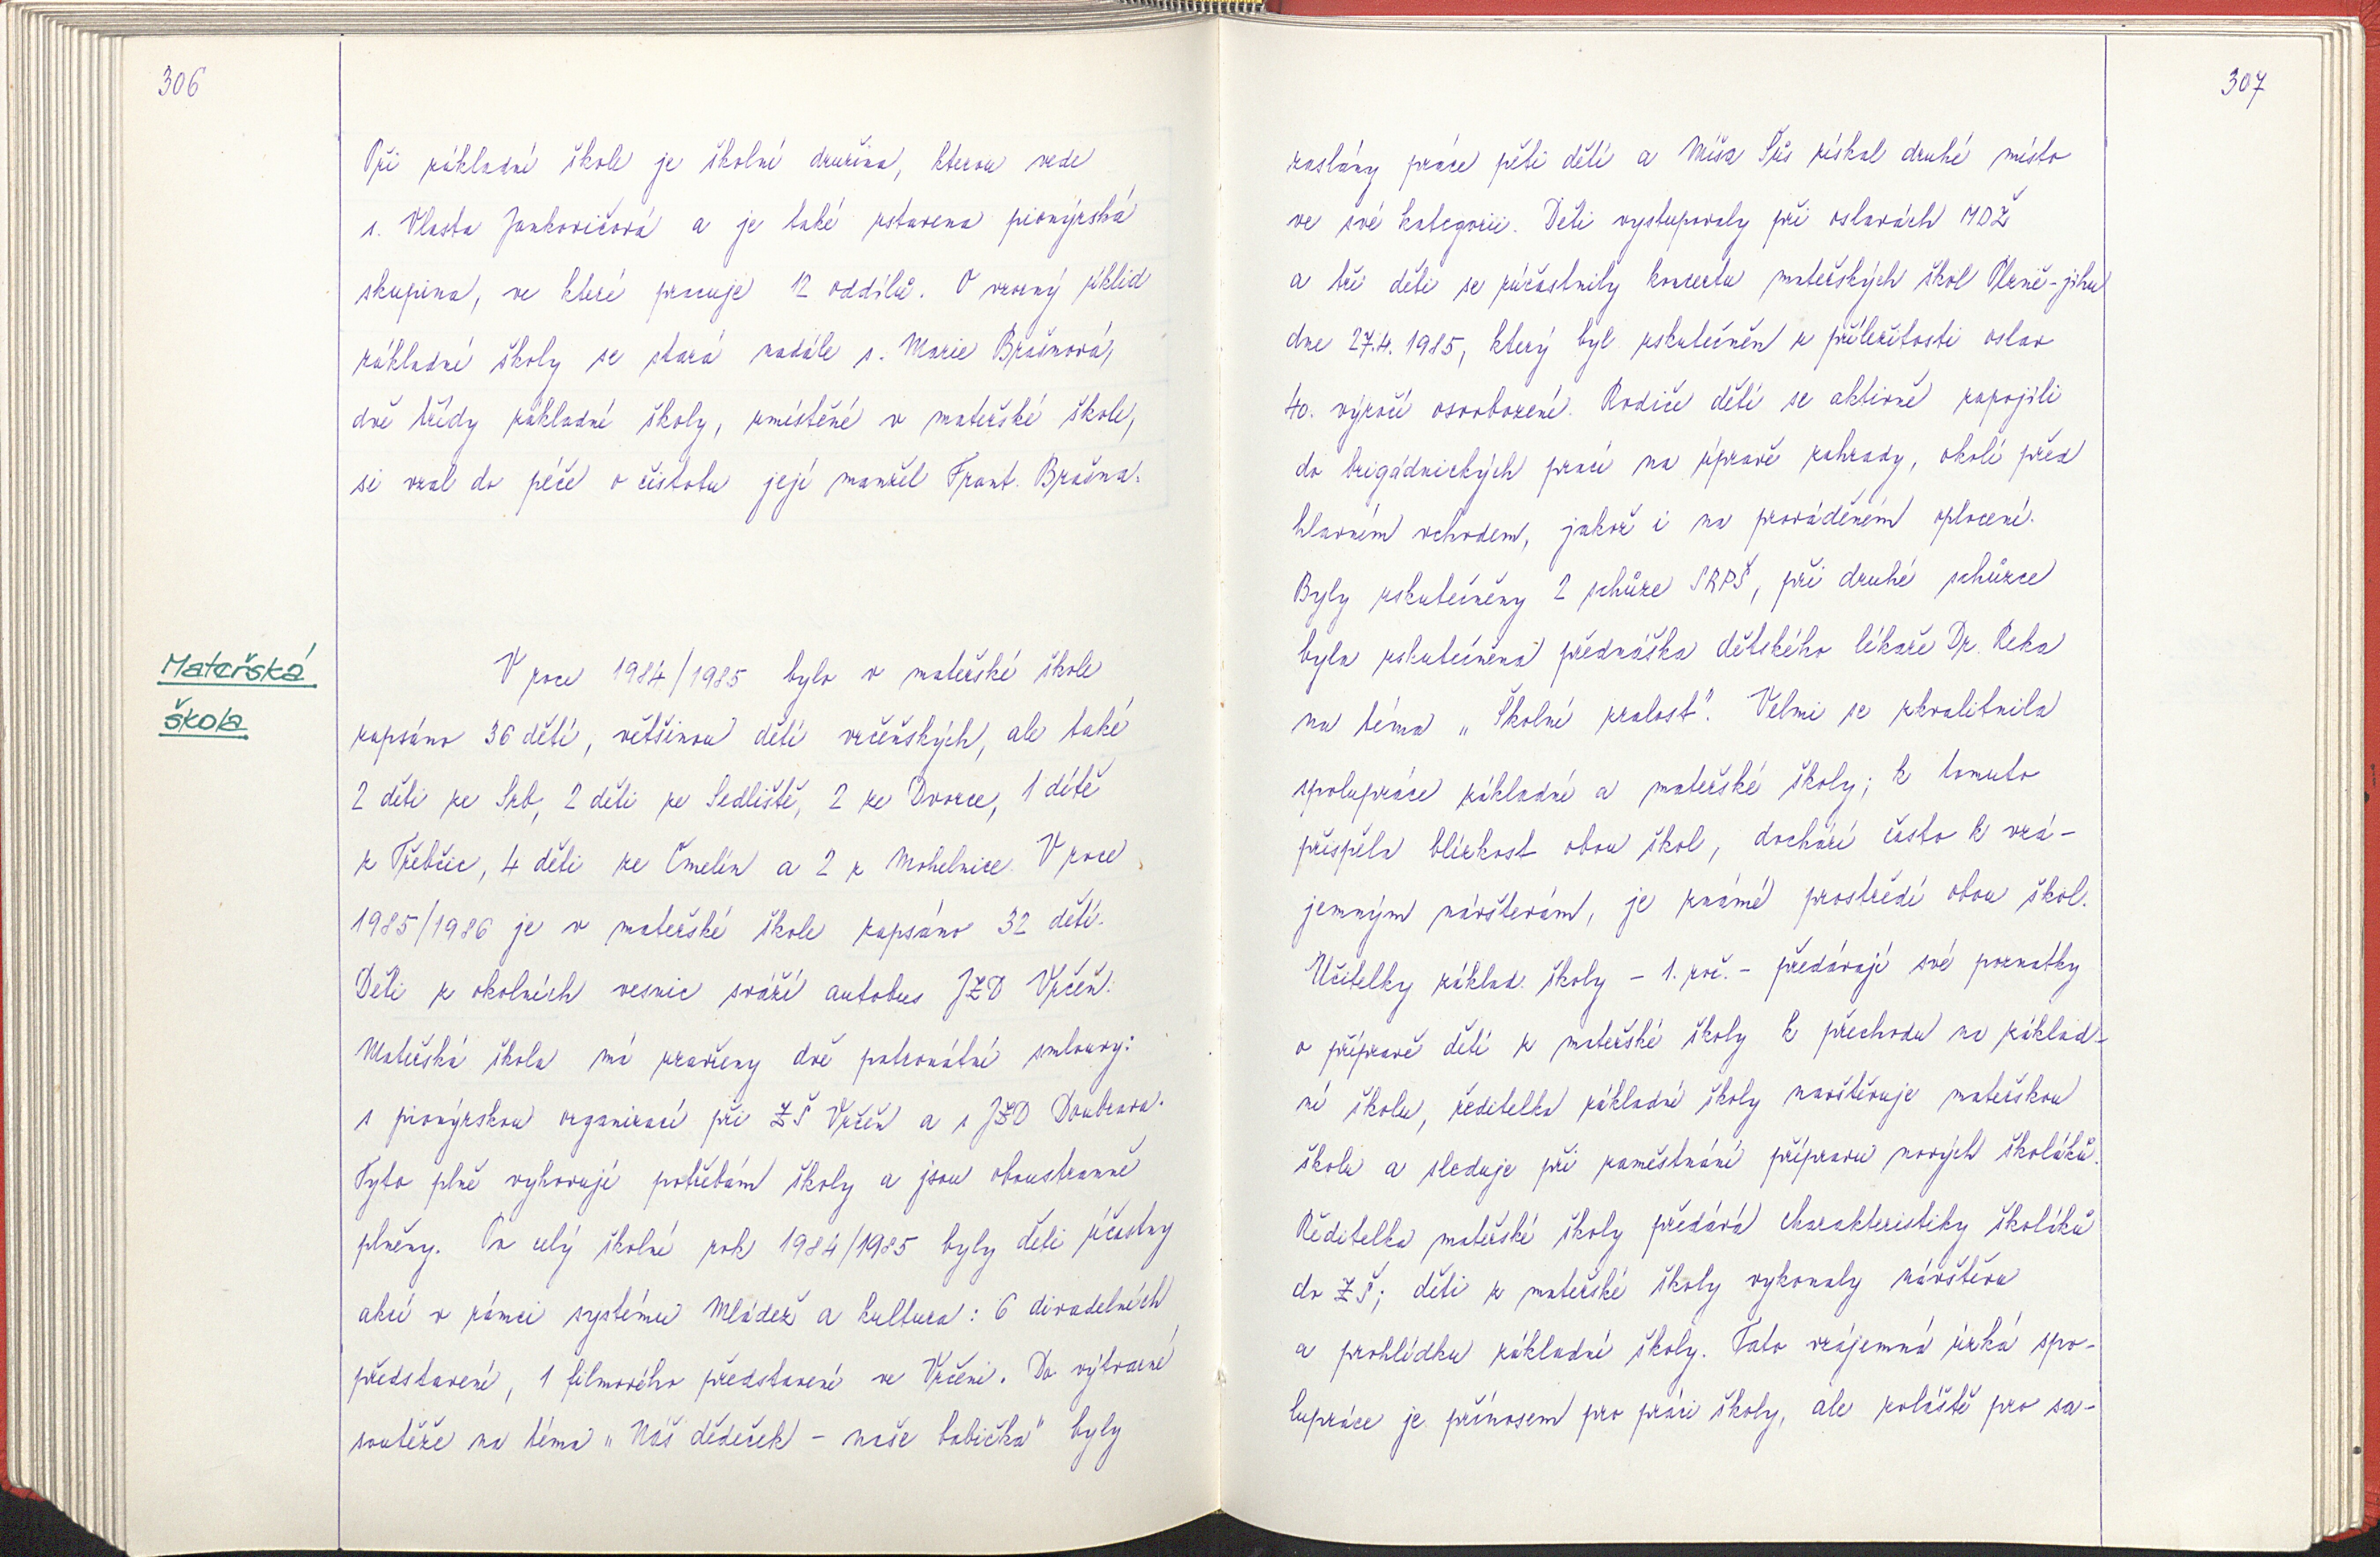 306
Při základní škole je školní družina, kterou vede
s. Vlasta Jankovičová a je také ustavena pionýrská
skupina, ve které pracuje 12 oddílů. O vzorný úklid
základní školy se stará nadále s. Marie Brašnová,
dvě třídy základní školy, umístěné v mateřské škole,
si vzal do péče o čistotu její manžel Frant. Brašna.
Mateřská
škola
V roce 1984/1985 bylo v mateřské škole
zapsáno 36 dětí, většinou dětí vrčeňských, ale také
2 děti ze Srb, 2 děti ze Sedliště, 2 ze Dvorce, 1 dítě
z Třebčic, 4 děti ze Čmelín a 2 z Mohelnice. V roce
1985/1986 je v mateřské škole zapsáno 32 dětí.
Děti z okolních vesnic sváží autobus JZD Vrčeň.
Mateřská škola má uzavřeny dvě patronátní smlouvy:
s pionýrskou organizací při ZŠ Vrčeň a s JZD Doubrava.
Tyto plně vyhovují potřebám školy a jsou oboustranně
plněny. Po celý školní rok 1984/1985 byly děti účastny
akcí v rámci systému Mládež a kultura: 6 divadelních
představení, 1 filmového představení ve Vrčeni. Do výtvarné
soutěže na téma "Náš dědeček - naše babička" byly
307
zaslány práce pěti dětí a Míša získal druhé místo
ve své kategorii. Děti vystupovaly při oslavách MDŽ
a tři děti se zúčastnily koncertu mateřských škol Plzně-jihu
dne 27.4. 1985, který byl uskutečněn u příležitosti oslav
40. výročí osvobození. Rodiče dětí se aktivně zapojili
do brigádnických prací na úpravě zahrady, okolí před
hlavním vchodem, jakož i na prováděném oplocení.
Byly uskutečněny 2 schůze SRPŠ, při druhé schůzce
byla uskutečněna přednáška dětského lékaře Dr. Reka
na téma "Školní zralost". Velmi se zkvalitnila
spolupráce základní a mateřské školy; k tomuto
přispěla blízkost obou škol, dochází často k vzá-
jemným návštěvám, je známé prostředí obou škol.
Učitelky základ. školy - 1. roč. - předávají své poznatky
o přípravě dětí z mateřské školy k přechodu na základ-
ní školu, ředitelka základní školy navštěvuje mateřskou
školu a sleduje při zaměstnání přípravu nových školáků.
Ředitelka mateřské školy předává charakteristiky školáků
do ZŠ; děti z mateřské školy vykonaly návštěvu
a prohlídku základní školy. Tato vzájemná úzká spo-
lupráce je přínosem pro práci školy, ale zvláště pro sa-